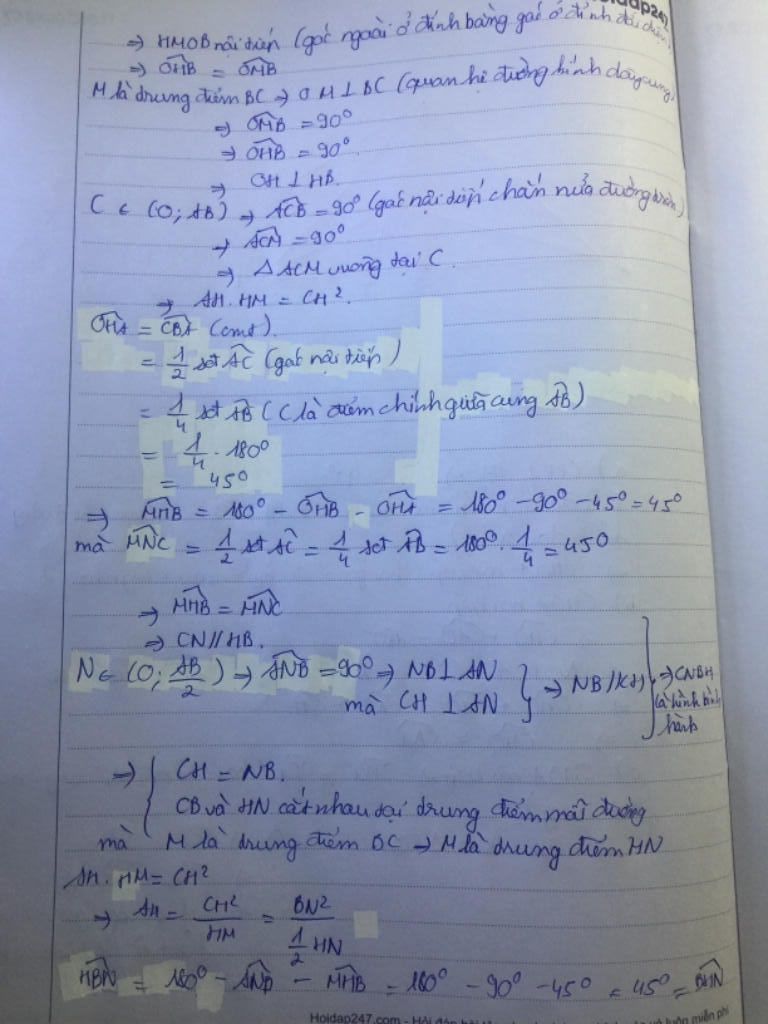 Hoidap247
⇒ HMOB nội tiếp (góc ngoài ở đỉnh bằng góc ở đỉnh đối diện)
⇒ \widehat{OHB} = \widehat{OMB}
M là trung điểm BC ⇒ OM ⊥ BC (quan hệ đường kính dây cung)
⇒ \widehat{OMB} = 90°
⇒ \widehat{OHB} = 90°
⇒ OH ⊥ HB.
C ∈ (O; AB) ⇒ \widehat{ACB} = 90° (góc nội tiếp chắn nửa đường tròn)
⇒ \widehat{ACM} = 90°
⇒ △ ACM vuông tại C.
⇒ AH.HM = CH².
\widehat{OHA} = \widehat{CBA} (cmt).
= \frac{1}{2} sđ \widehat{AC} (góc nội tiếp)
= \frac{1}{4} sđ \widehat{AB} (C là điểm chính giữa cung \widehat{AB})
= \frac{1}{4} . 180°
= 45°
⇒ \widehat{MHB} = 180° - \widehat{OHB} - \widehat{OHA} = 180° - 90° - 45° = 45°
mà \widehat{MNC} = \frac{1}{2} sđ \widehat{AC} = \frac{1}{4} sđ \widehat{AB} = 180° . \frac{1}{4} = 450
⇒ \widehat{MHB} = \widehat{MNC}
⇒ CN // HB.
N ∈ (O; \frac{AB}{2}) ⇒ \widehat{ANB} = 90° ⇒ NB ⊥ AN
mà CH ⊥ AN } ⇒ NB // CH } ⇒ CNBH là hình bình hành
⇒ { CH = NB.
CB và HN cắt nhau tại trung điểm mỗi đường
mà M là trung điểm BC ⇒ M là trung điểm HN
AH.HM = CH²
⇒ AH = \frac{CH²}{HM} = \frac{BN²}{\frac{1}{2} HN}
\widehat{HBN} = 180° - \widehat{ANB} - \widehat{MHB} = 180° - 90° - 45° = 45° = \widehat{BHN}
Hoidap247.com - Hỏi đáp bài tập
và luôn miễn phí